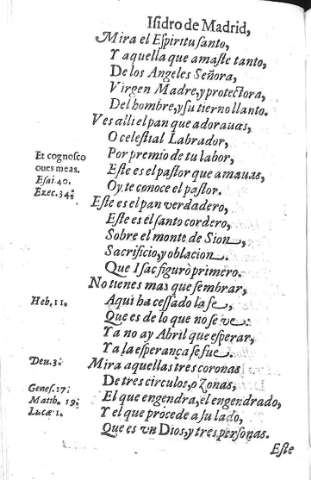 Isidro de Madrid,
Mira el Eſpiritu ſanto,
Y aquella que amaſte tanto,
De los Angeles Señora,
Virgen Madre, y protectora,
Del hombre, y ſu tierno llanto.
Ves alli el pan que adorauas,
O celeſtial Labrador,
Por premio de tu labor,
Eſte es el paſtor que amauas,
Oy te conoce el paſtor.
Et cognoſco
oues meas.
Eſai. 40.
Ezec. 34.
Eſte es el pan verdadero,
Eſte es el ſanto cordero,
Sobre el monte de Sion,
Sacrificio, y oblacion.
Que Iſac figurò primero.
No tienes mas que ſembrar,
Heb, 11.
Aqui ha ceſſado la fe,
Que es de lo que no ſe ve:
Ya no ay Abril que eſperar,
Ya la eſperança ſe fue.
Deu. 3.
Mira aquellas tres coronas
De tres circulos, o Zonas,
Geneſ. 17:
Matth. 19:
Lucæ 1.
El que engendra, el engendrado,
Y el que procede a ſu lado,
Que es vn Dios, y tres perſonas.
Eſte